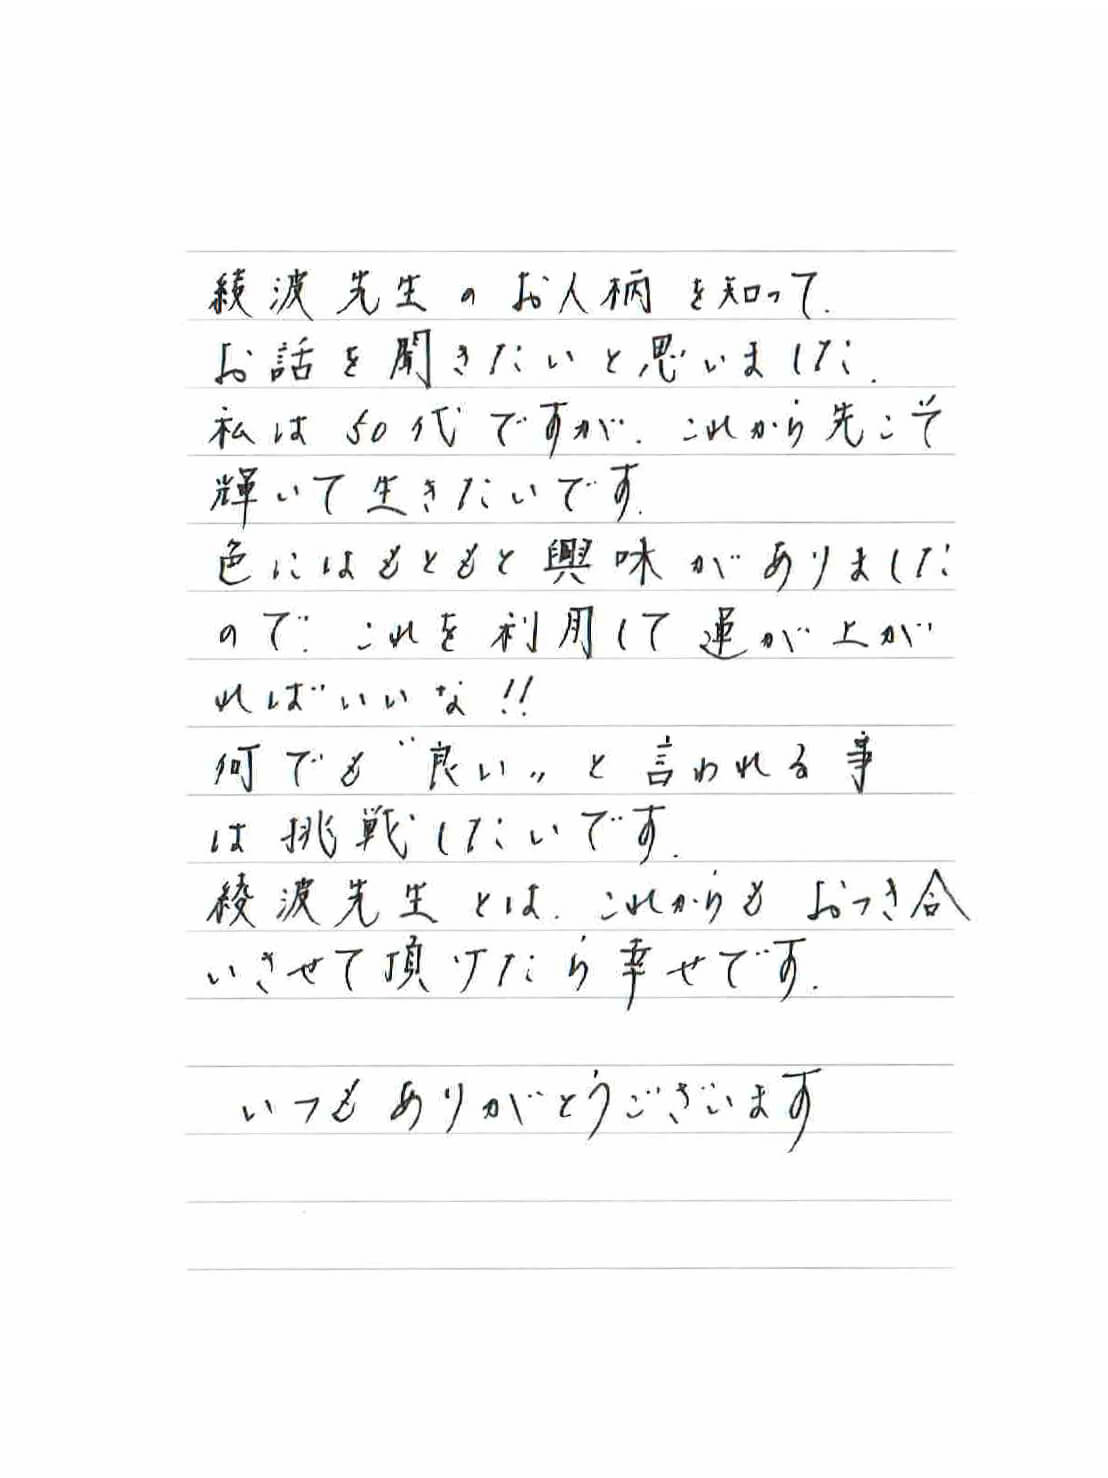 綾波先生のお人柄を知って.
お話を聞きたいと思いました.
私は50代ですが.これから先こそ
輝いて生きたいです.
色にはもともと興味がありました
ので.これを利用して運が上が
ればいいな!!
何でも"良い"と言われる事
は挑戦したいです.
綾波先生とは.これからもおつき合
いさせて頂けたら幸せです.
いつもありがとうございます